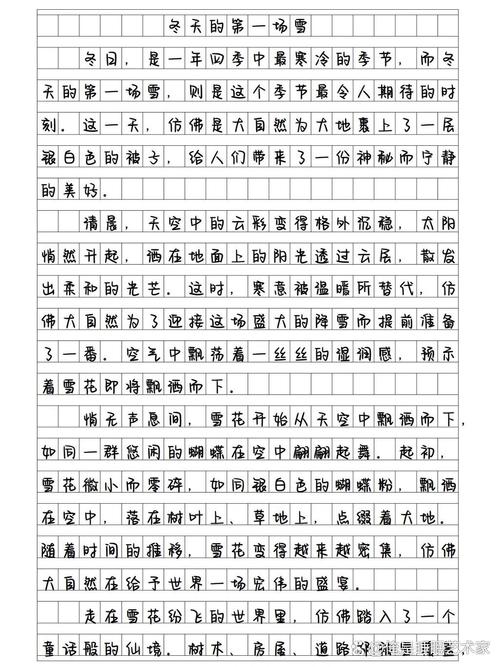 冬天的第一场雪
冬日，是一年四季中最寒冷的季节，而冬
天的第一场雪，则是这个季节最令人期待的时
刻．这一天，仿佛是大自然为大地裹上了一层
银白色的被子，给人们带来了一份神秘而宁静
的美好．
清晨，天空中的云彩变得格外沉稳，太阳
悄然升起，洒在地面上的阳光透过云层，散发
出柔和的光芒．这时，寒意被温暖所替代，仿
佛大自然为了迎接这场盛大的降雪而提前准备
了一番．空气中飘荡着一丝丝的湿润感，预示
着雪花即将飘洒而下．
悄无声息间，雪花开始从天空中飘洒而下，
如同一群悠闲的蝴蝶在空中翩翩起舞．起初，
雪花微小而零碎，如同银白色的蝴蝶粉，飘洒
在空中，落在树叶上、草地上，点缀着大地．
随着时间的推移，雪花变得越来越密集，仿佛
大自然在给予世界一场宏伟的盛宴．
走在雪花纷飞的世界里，仿佛踏入了一个
童话般的仙境．树木、房屋、道路